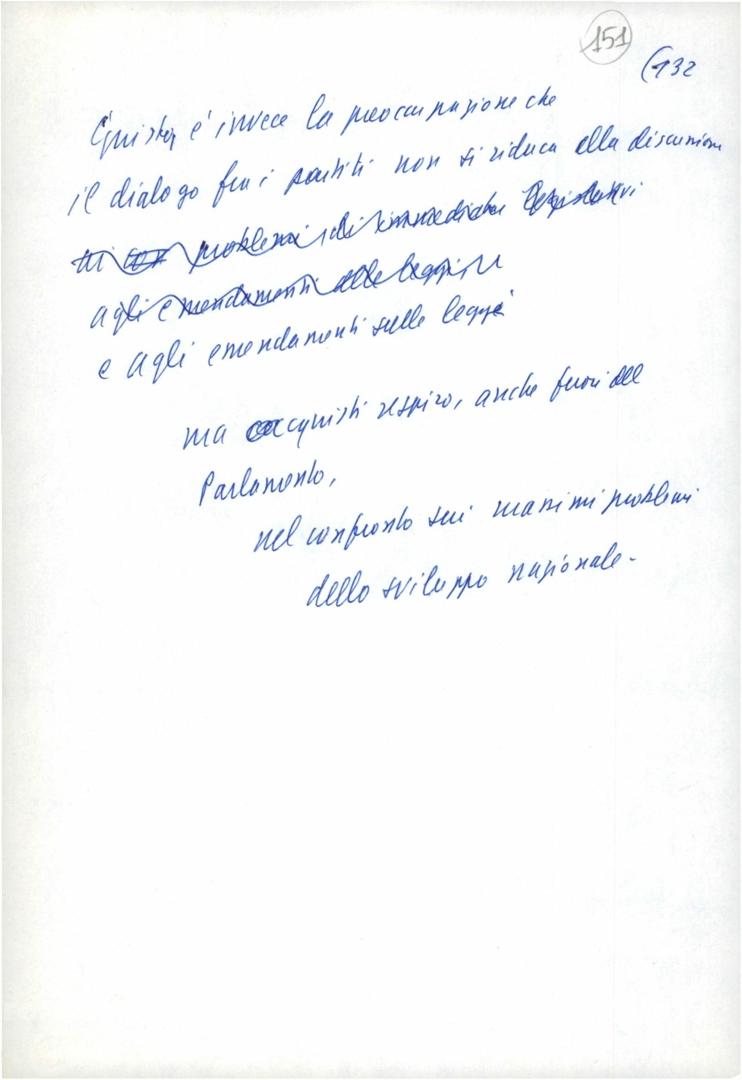 151
(132
È giusta è invece la preoccupazione che
il dialogo fra i partiti non si riduca alla discussione
problemi di immediata legislativi
agli emendamenti alle leggi
e agli emendamenti sulle leggi
ma acquisti respiro, anche fuori del
Parlamento,
nel confronto sui massimi problemi
dello sviluppo nazionale.